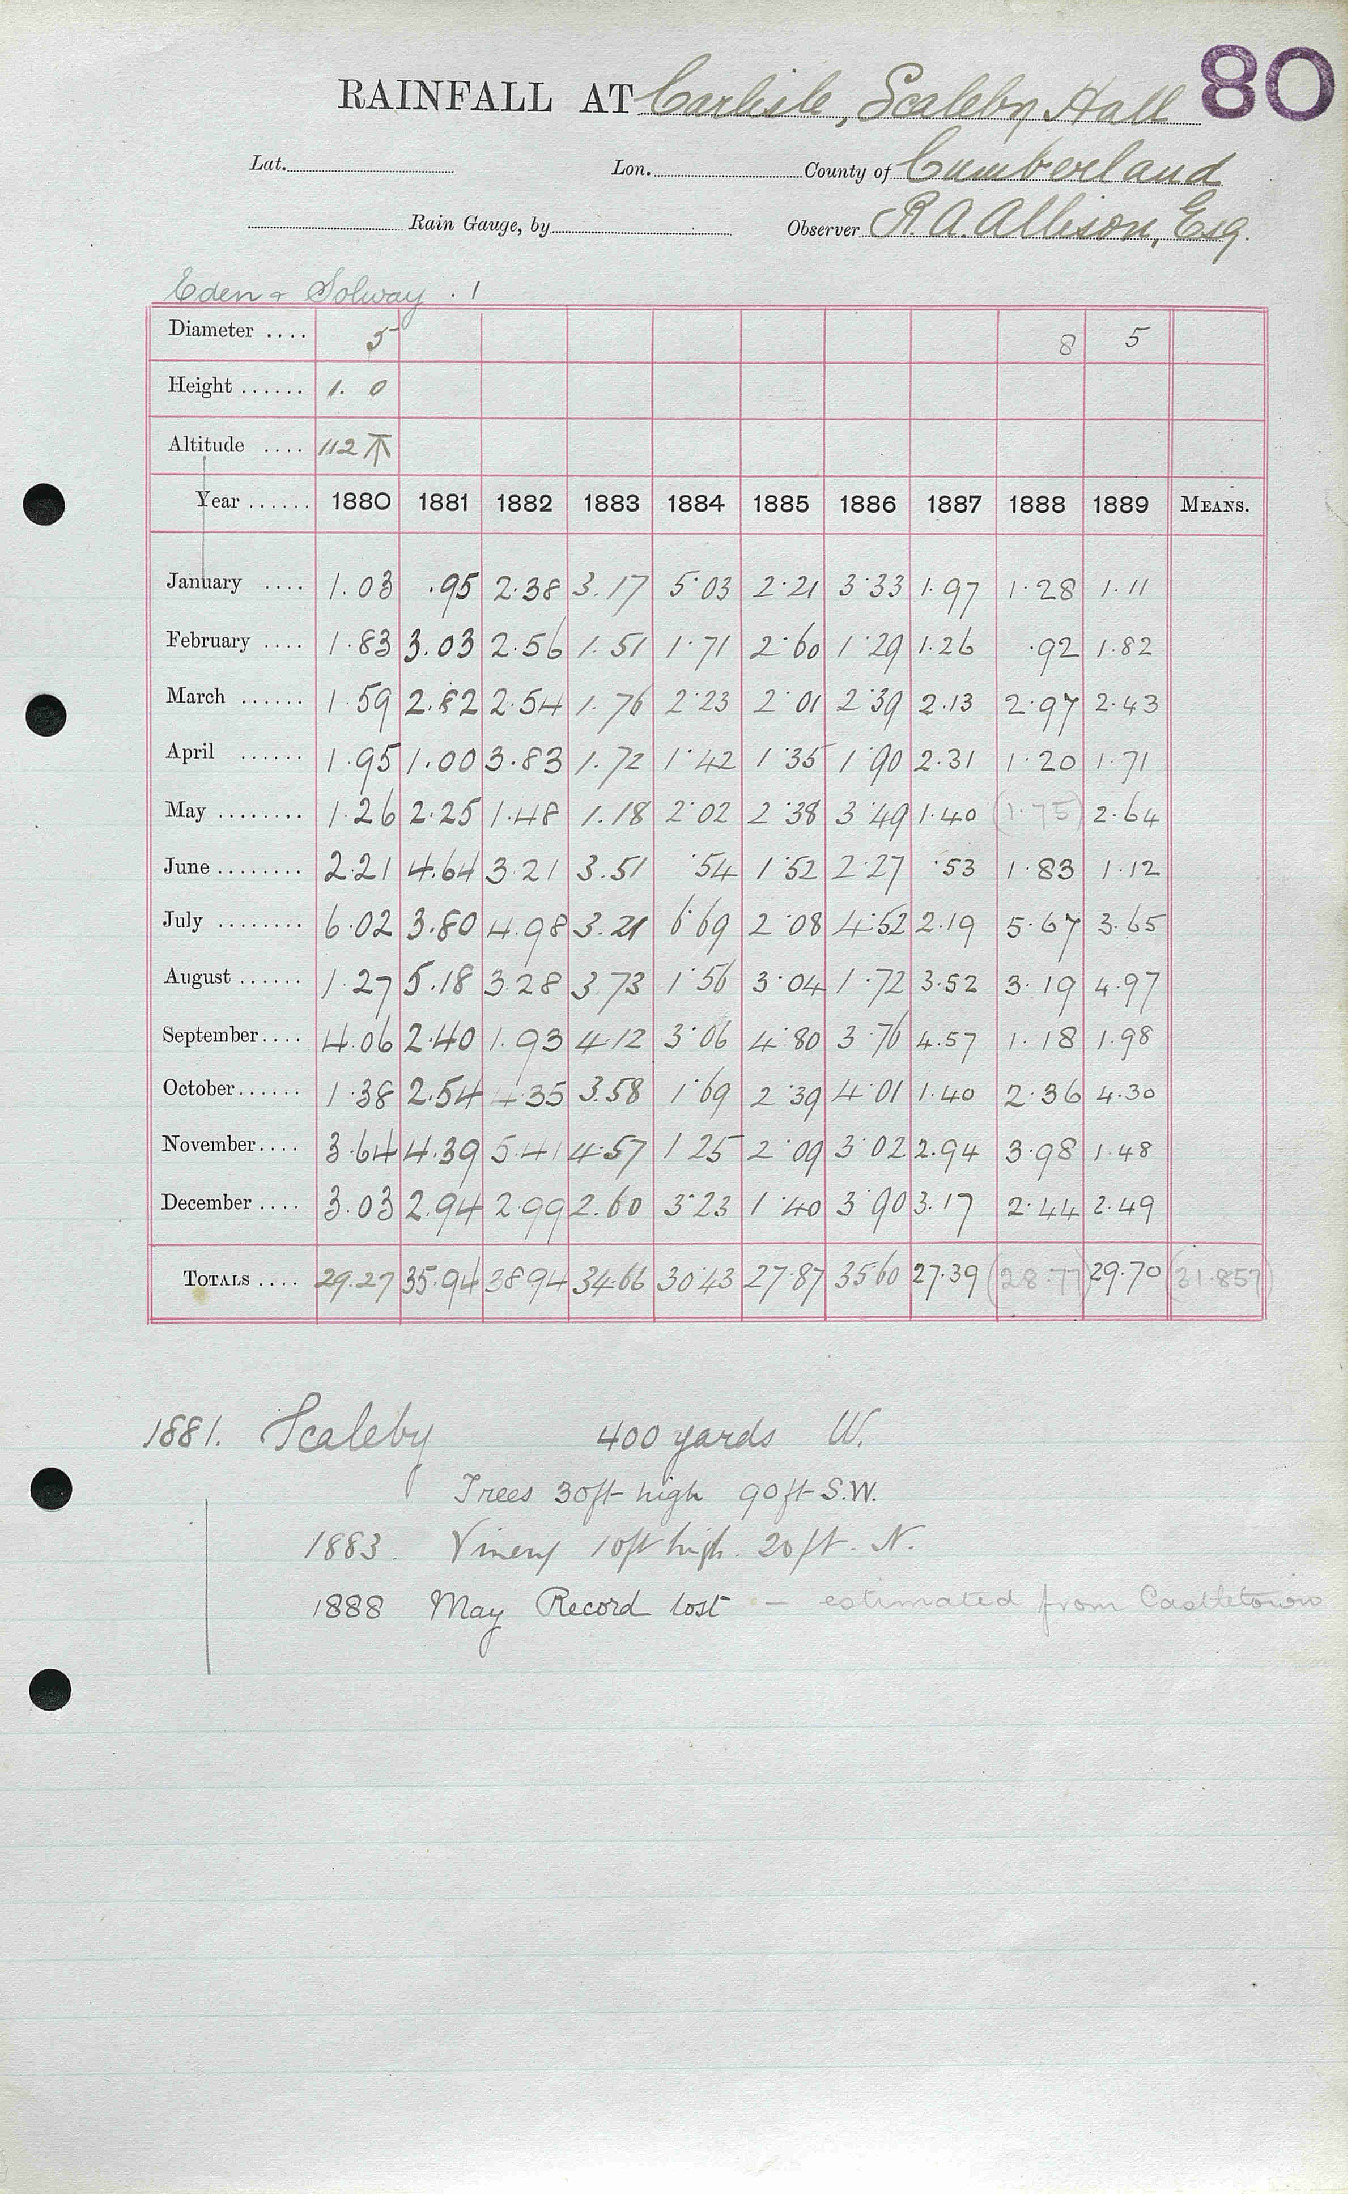 80
RAINFALL AT Carlisle, Scaleby Hall
Lat. Lon. County of Cumberland
Rain Gauge, by Observer R. A. Allison, Esq.
Eden & Solway . 1
Diameter .... 5 8 5
Height ...... 1. 0
Altitude .... 112 ↑
Year ...... 1880 1881 1882 1883 1884 1885 1886 1887 1888 1889 MEANS.
January .... 1.03 .95 2.38 3.17 5.03 2.21 3.33 1.97 1.28 1.11
February .... 1.83 3.03 2.56 1.51 1.71 2.60 1.29 1.26 .92 1.82
March ...... 1.59 2.82 2.54 1.76 2.23 2.01 2.39 2.13 2.97 2.43
April ...... 1.95 1.00 3.83 1.72 1.42 1.35 1.90 2.31 1.20 1.71
May ........ 1.26 2.25 1.48 1.18 2.02 2.38 3.49 1.40 (1.75) 2.64
June ........ 2.21 4.64 3.21 3.51 .54 1.52 2.27 .53 1.83 1.12
July ........ 6.02 3.80 4.98 3.21 6.69 2.08 4.52 2.19 5.67 3.65
August ...... 1.27 5.18 3.28 3.73 1.56 3.04 1.72 3.52 3.19 4.97
September .... 4.06 2.40 1.93 4.12 3.06 4.80 3.76 4.57 1.18 1.98
October ...... 1.38 2.54 4.35 3.58 1.69 2.39 4.01 1.40 2.36 4.30
November .... 3.64 4.39 5.41 4.57 1.25 2.09 3.02 2.94 3.98 1.48
December .... 3.03 2.94 2.99 2.60 3.23 1.40 3.90 3.17 2.44 2.49
TOTALS .... 29.27 35.94 38.94 34.66 30.43 27.87 35.60 27.39 (28.77) 29.70 (31.857)
1881. Scaleby 400 yards W.
Trees 30ft high 90ft S.W.
1883. Vinery 10ft high. 20ft. N.
1888 May Record lost - estimated from Castletown